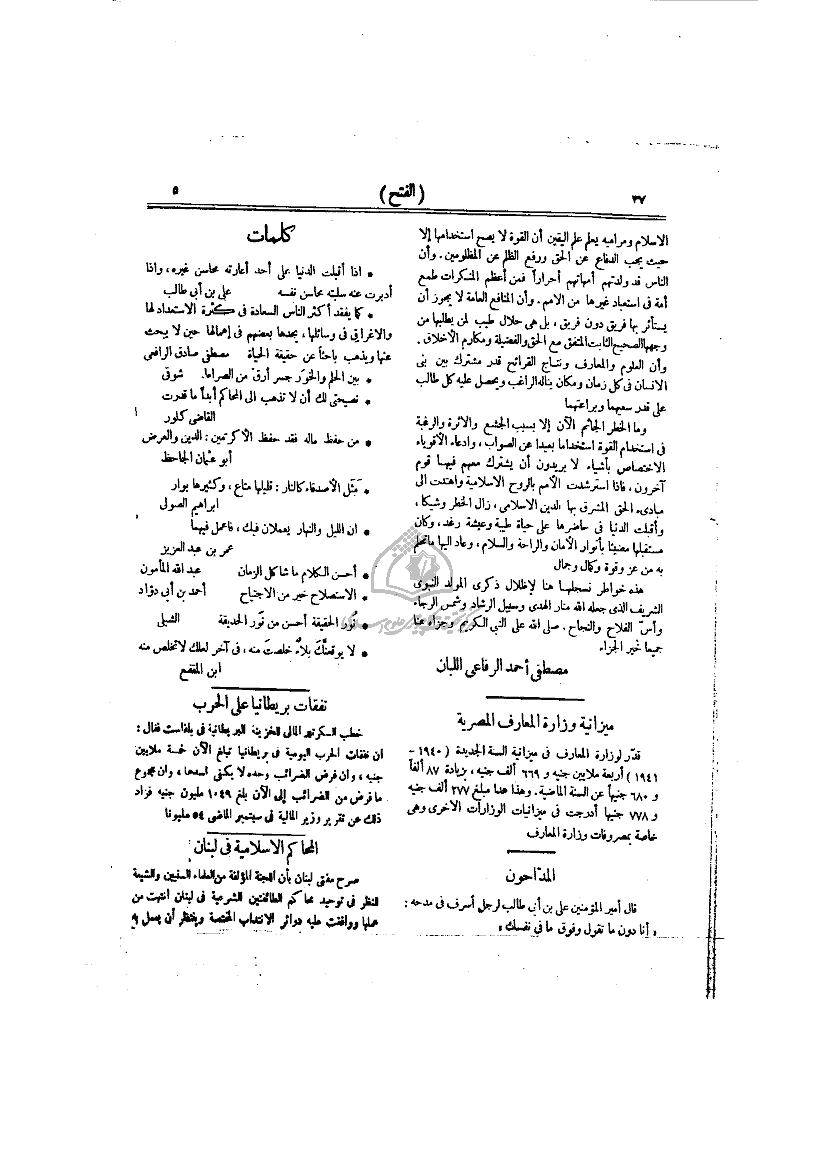 ٣٧
( الفتح )
٥
الاسلام ومراميه يعلم علم اليقين أن القوة لا يصح استخدامها إلا
حيث يجب الدفاع عن الحق ورفع الظلم عن المظلومين. وأن
الناس قد ولدتهم أمهاتهم أحراراً فمن أعظم المنكرات طمع
أمة فى استعباد غيرها من الامم. وأن المنافع العامة لا يجوز أن
يستأثر بها فريق دون فريق، بل هى حلال طيب لمن يطلبها من
وجهها الصحيح الثابت المتفق مع الحق والفضيلة ومكارم الأخلاق.
وأن العلوم والمعارف ونتاج القرائح قدر مشترك بين بنى
الانسان فى كل زمان ومكان يناله الراغب ويحصل عليه كل طالب
على قدر سعيهما وبراعتهما
وما الخطر الجاثم الآن إلا بسبب الجشع والاثرة والرغبة
فى استخدام القوة استخداما بعيدا عن الصواب، وادعاء الأقوياء
الاختصاص بأشياء لا يريدون أن يشترك معهم فيها قوم
آخرون، فاذا استرشدت الأمم بالروح الاسلامية واهتدت الى
مبادىء الحق المشرق بها الدين الاسلامى، زال الخطر وشيكا،
وأقبلت الدنيا فى حاضرها على حياة طيبة وعيشة رغد، وكان
مستقبلها مضيئا بأنوار الأمان والراحة والسلام، وعاد اليها ما تحلم
به من عز وقوة وكمال وجمال
هذه خواطر نسجلها هنا لإظلال ذكرى المولد النبوى
الشريف الذى جعله الله منار الهدى وسبيل الرشاد وشمس الرجاء
وأسّ الفلاح والنجاح. صلى الله على النبي الكريم وجزاه عنا
جميعا خير الجزاء
مصطفى أحمد الرفاعى اللبان
ميزانية وزارة المعارف المصرية
قدّر لوزارة المعارف فى ميزانية السنة الجديدة ( ١٩٤٠ -
١٩٤١ ) أربعة ملايين جنيه و ٦٦٩ ألف جنيه، بزيادة ٨٧ ألفاً
و ٦٨٠ جنيهاً عن السنة الماضية. وهذا عدا مبلغ ٢٧٧ ألف جنيه
و ٧٧٨ جنيها أدرجت فى ميزانيات الوزارات الأخرى وهى
خاصة بمصروفات وزارة المعارف
المدّاحون
قال أمير المؤمنين على بن أبى طالب لرجل أسرف فى مدحه:
« أنا دون ما تقول وفوق ما فى نفسك »
كلمات
• اذا أقبلت الدنيا على أحد أعارته محاسن غيره، واذا
أدبرت عنه سلبته محاسن نفسه على بن أبى طالب
• كما يفقد أكثر الناس السعادة فى كثرة الاستعداد لها
والاغراق فى وسائلها، يجدها بعضهم فى إهمالها حين لا يبحث
عنها ويذهب باحثاً عن حقيقة الحياة مصطفى صادق الرافعى
• بين الحلم والخوَر جسر أرق من الصراط. شوقى
• نصيحتى لك أن لا تذهب الى المحاكم أبداً ما قدرت
القاضى كلور
• من حفظ ماله فقد حفظ الأكرمين: الدين والعرض
أبو عثمان الجاحظ
• مَثَل الأصدقاء كالنار: قليلها متاع، وكثيرها بوار
ابراهيم الصولى
• ان الليل والنهار يعملان فيك، فاعمل فيهما
عمر بن عبد العزيز
• أحسن الكلام ما شاكل الزمان عبد الله المأمون
• الاستصلاح خير من الاجتياح أحمد بن أبى دؤاد
• نُور الحقيقة أحسن من نَور الحديقة الشبلى
• لا يوقعنَّك بلاءٌ خلصتَ منه، فى آخر لعلك لا تخلص منه
ابن المقفع
نفقات بريطانيا على الحرب
خطب السكرتير المالى للخزينة البريطانية فى بلفاست فقال:
ان نفقات الحرب اليومية فى بريطانيا تبلغ الآن خمسة ملايين
جنيه، وان فرض الضرائب وحده لا يكفى لسدها، وان مجموع
ما فرض من الضرائب إلى الآن بلغ ١٠٤٩ مليون جنيه فزاد
ذلك عن تقرير وزير المالية فى سبتمبر الماضى ٥٤ مليونا
المحاكم الاسلامية فى لبنان
صرح مفتى لبنان بأن اللجنة المؤلفة من العلماء السنيين والشيعة
للنظر فى توحيد محاكم الطائفتين الشرعية فى لبنان انتهت من
عملها ووافقت عليه دوائر الانتداب المختصة وينتظر أن يعمل به